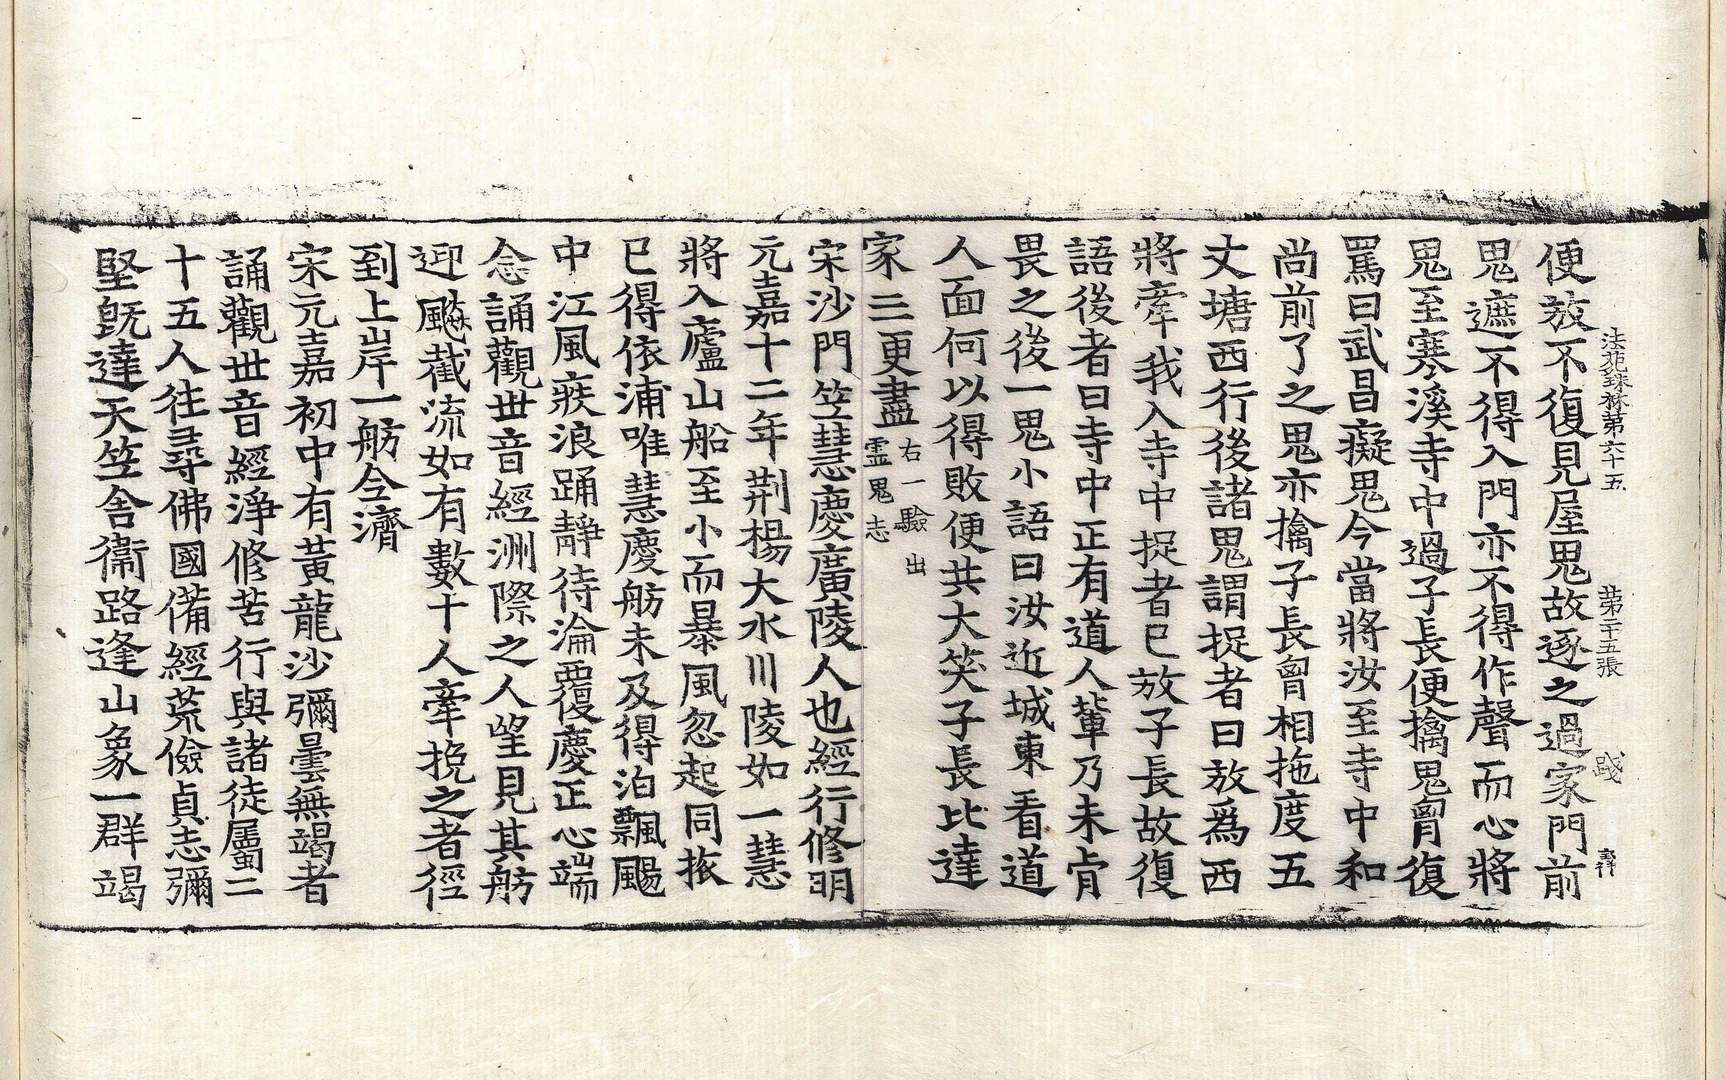 法苑珠林第六十五 第二十五張 踐
便放不復見屋鬼故逐之過家門前
鬼遮不得入門亦不得作聲而心將
鬼至寒溪寺中過子長便擒鬼胷復
罵曰武昌癡鬼今當將汝至寺中和
尚前了之鬼亦擒子長胷相拖度五
丈塘西行後諸鬼謂捉者曰放爲西
將牽我入寺中捉者已放子長故復
語後者曰寺中正有道人輩乃未肯
畏之後一鬼小語曰汝近城東看道
人面何以得敗便共大笑子長比達
家三更盡右一驗出靈鬼志
宋沙門竺慧慶廣陵人也經行修明
元嘉十二年荆楊大水川陵如一慧慶
將入廬山船至小而暴風忽起同旅
已得依浦唯慧慶舫未及得泊飄颺
中江風疾浪踊靜待淪覆慶正心端
念誦觀世音經洲際之人望見其舫
迎飈截流如有數十人牽挽之者徑
到上岸一舫全濟
宋元嘉初中有黃龍沙彌曇無竭者
誦觀世音經淨修苦行與諸徒屬二
十五人往尋佛國備經荒儉貞志彌
堅既達天竺舍衞路逢山象一群竭